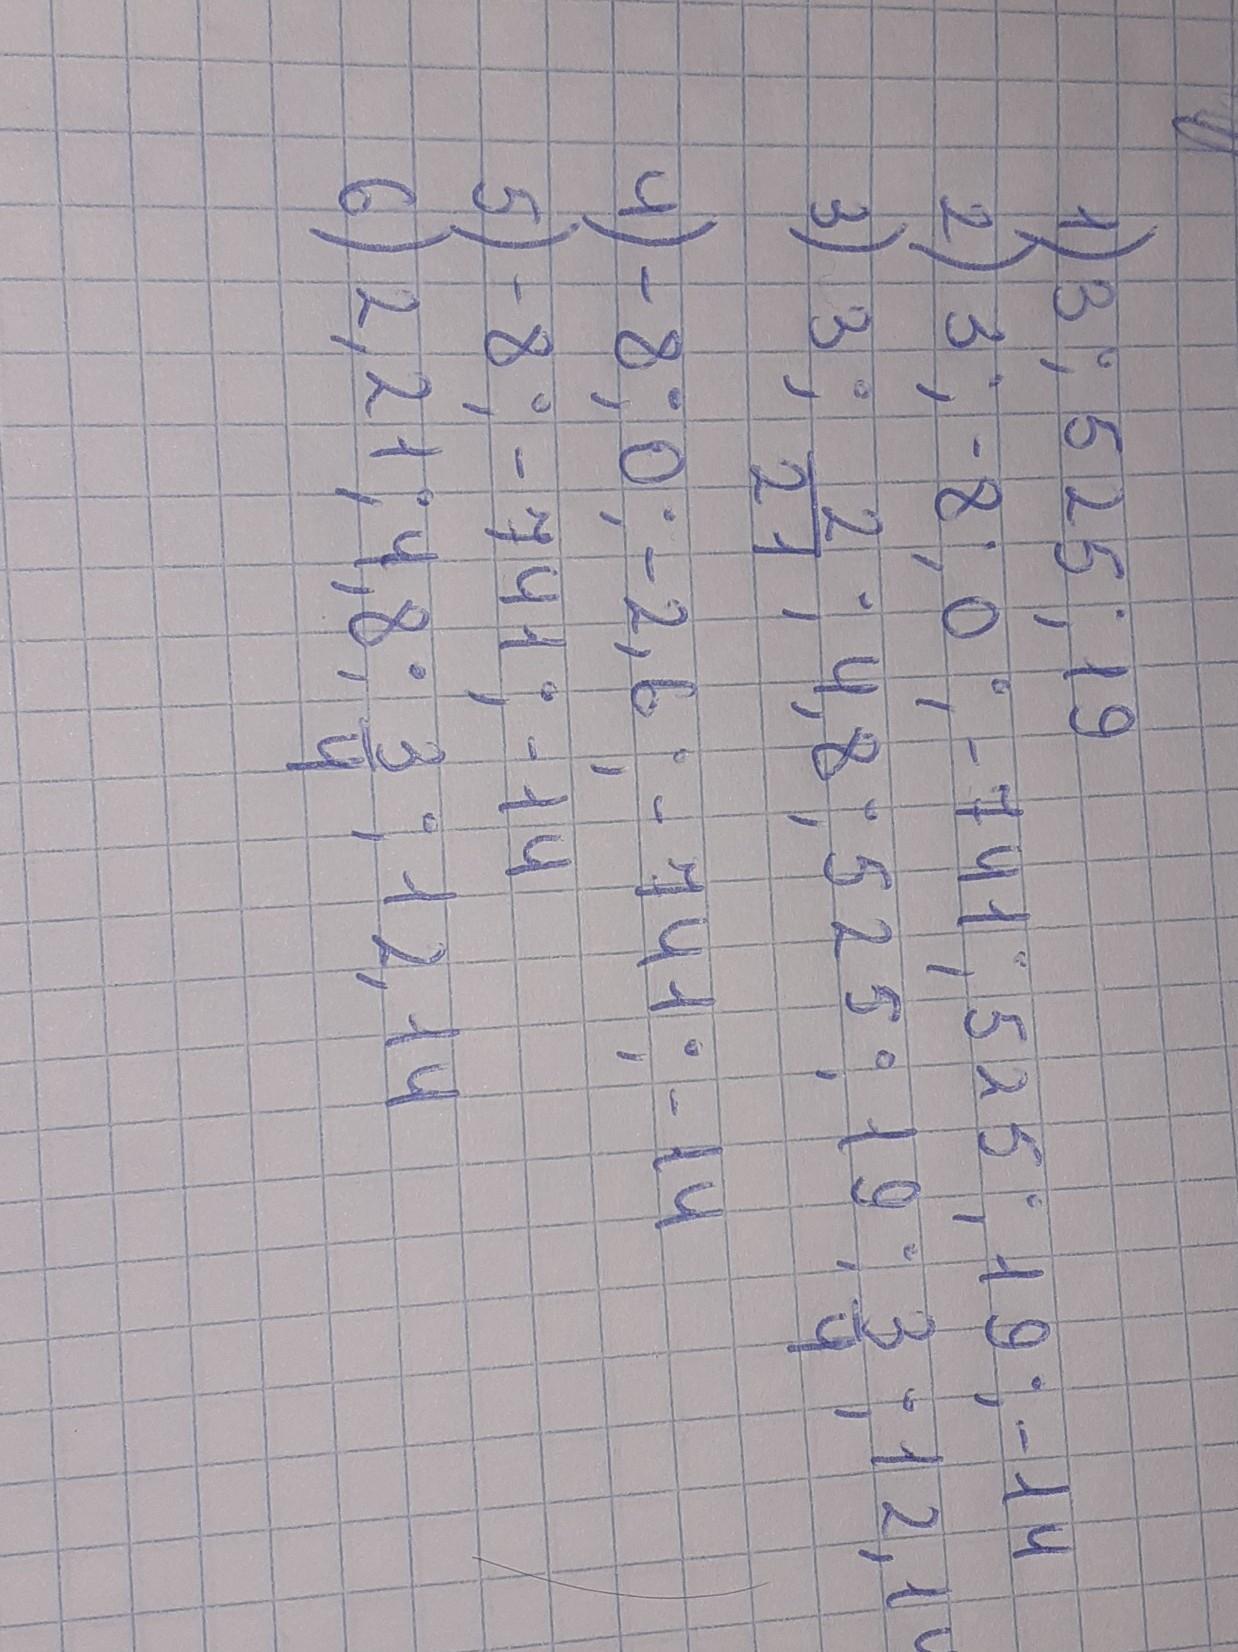 1) 3; 525; 19
2) 3; -8; 0; -741; 525; 19; -14
3) 3; 2/21; 4,8; 525; 19; 3/4; 12,14
4) -8; 0; -2,6; -741; -14
5) -8; -741; -14
6) 2,21; 4,8; 3/4; 12,14